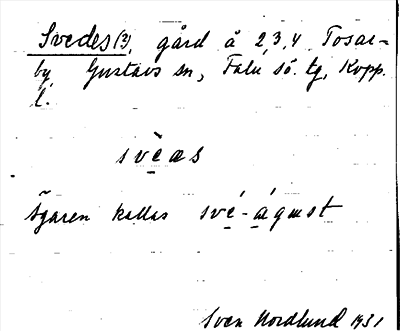 Svedes (3), gård å 2,3,4 Tosar-
by, Gustavs sn, Falu sö. tg, Kopp.
l.
svèas
Ägaren kallas své-águst
Sven Nordlund 1931